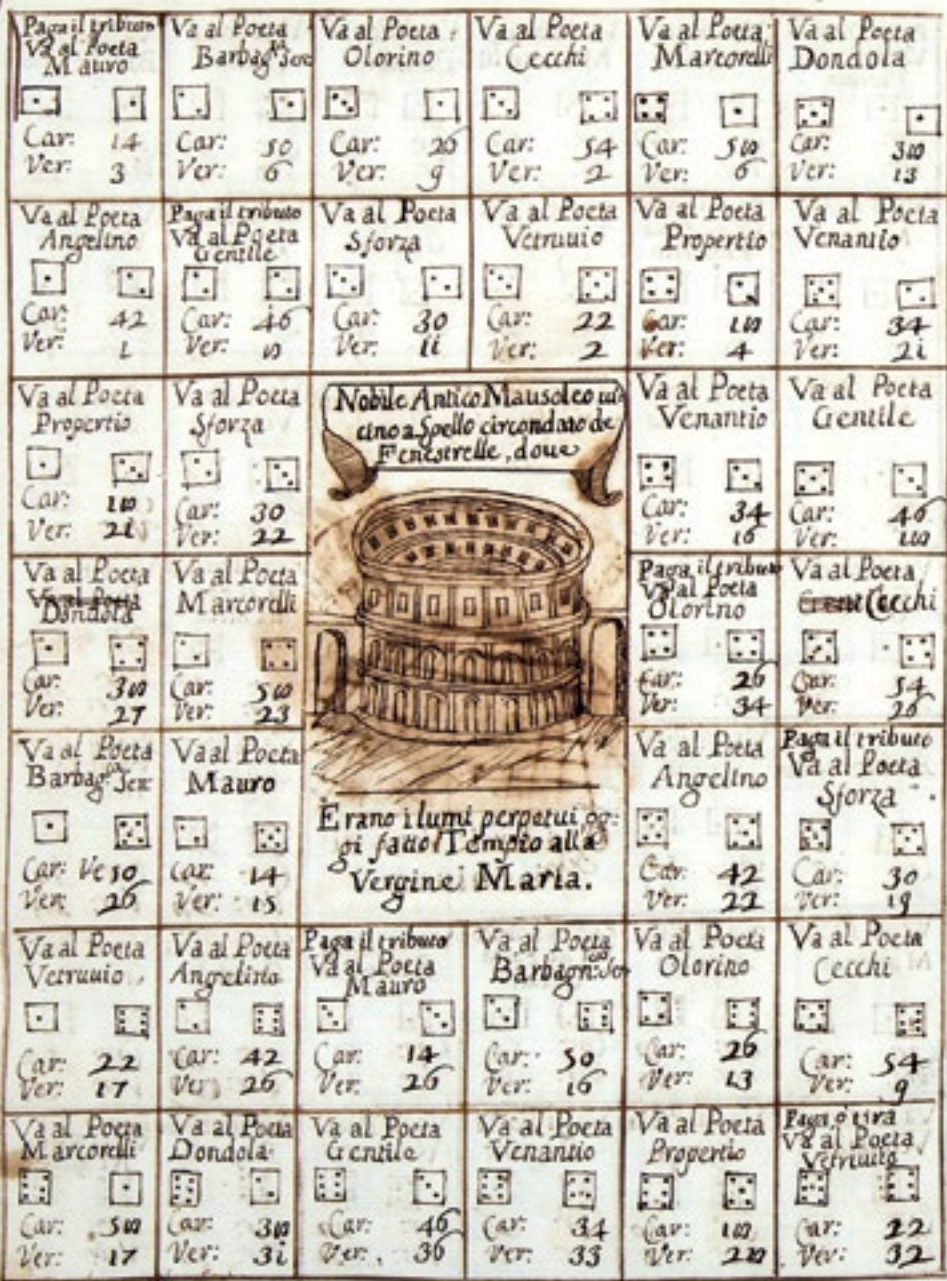 Paga il tributo
Va al Poeta
Mauro
Car: 14
Ver: 3
Va al Poeta
Car: 50
Ver: 6
Va al Poeta
Olorino
Car: 26
Ver: 9
Va al Poeta
Cecchi
Car: 54
Ver: 2
Va al Poeta
Marcorelli
Car: 58
Ver: 6
Va al Poeta
Dondola
Car: 38
Ver: 13
Va al Poeta
Angelino
Car: 42
Ver: 1
Paga il tributo
Va al Poeta
Gentile
Car: 46
Ver: 8
Va al Poeta
Sforza
Car: 30
Ver: 11
Va al Poeta
Vetruuio
Car: 22
Ver: 2
Va al Poeta
Propertio
Car: 18
Ver: 4
Va al Poeta
Venantio
Car: 34
Ver: 21
Va al Poeta
Propertio
Car: 18
Ver: 21
Va al Poeta
Sforza
Car: 30
Ver: 22
Nobile Antico Mausoleo ui
cino a Spello circondato de
Fenestrelle, doue
Va al Poeta
Venantio
Car: 34
Ver: 16
Va al Poeta
Gentile
Car: 46
Ver: 18
Va al Poeta
Va al Poeta
Dondola
Car: 38
Ver: 27
Va al Poeta
Marcorelli
Car: 58
Ver: 23
Paga il tributo
Va al Poeta
Olorino
Car: 26
Ver: 34
Va al Poeta
Cecchi
Car: 54
Ver: 26
Va al Poeta
Car: Ve 50
Ver: 26
Va al Poeta
Mauro
Car: 14
Ver: 15
Erano i lumi perpetui og:
gi fatto Tempio alla
Vergine Maria.
Va al Poeta
Angelino
Car: 42
Ver: 22
Paga il tributo
Va al Poeta
Sforza
Car: 30
Ver: 19
Va al Poeta
Vetruuio
Car: 22
Ver: 17
Va al Poeta
Angelino
Car: 42
Ver: 26
Paga il tributo
Va al Poeta
Mauro
Car: 14
Ver: 26
Va al Poeta
Car: 50
Ver: 16
Va al Poeta
Olorino
Car: 26
Ver: 13
Va al Poeta
Cecchi
Car: 54
Ver: 9
Va al Poeta
Marcorelli
Car: 58
Ver: 17
Va al Poeta
Dondola
Car: 38
Ver: 31
Va al Poeta
Gentile
Car: 46
Ver: 36
Va al Poeta
Venantio
Car: 34
Ver: 33
Va al Poeta
Propertio
Car: 18
Ver: 28
Paga o tira
Va al Poeta
Vetruuio
Car: 22
Ver: 32